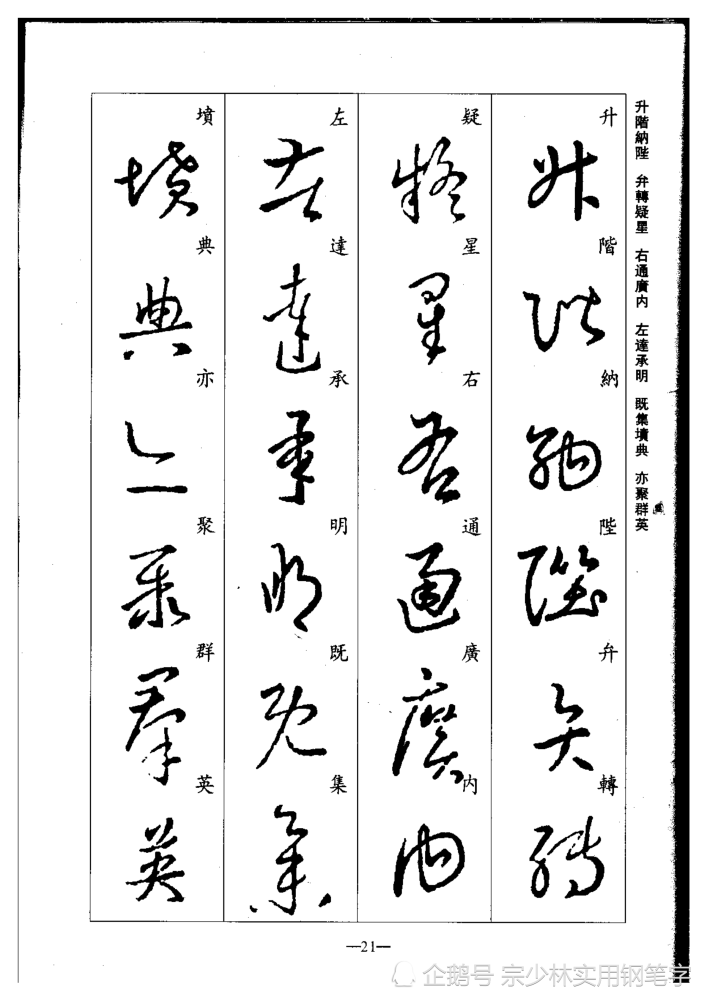 升階納陛 弁轉疑星 右通廣内 左達承明 既集墳典 亦聚群英
升階納陛弁轉
疑星右通廣内
左達承明既集
墳典亦聚群英
—21—
企鹅号 宗少林实用钢笔字